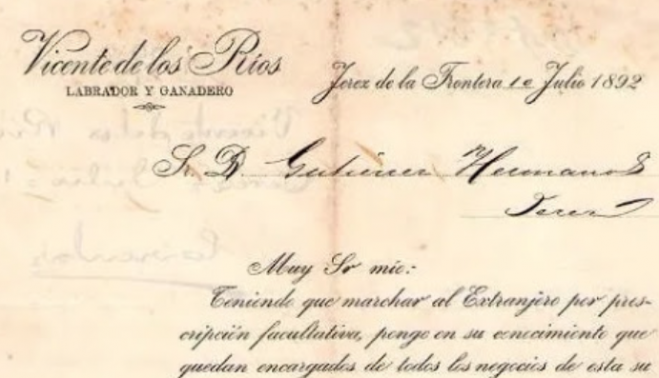 Vicente de los Rios
LABRADOR Y GANADERO
Jerez de la Frontera 1º Julio 1892
S. D. Gutierrez Hermanos
Jerez
Muy Sr mio:
Teniendo que marchar al Extranjero por pres-
cripción facultativa, pongo en su conocimiento que
quedan encargados de todos los negocios de esta su